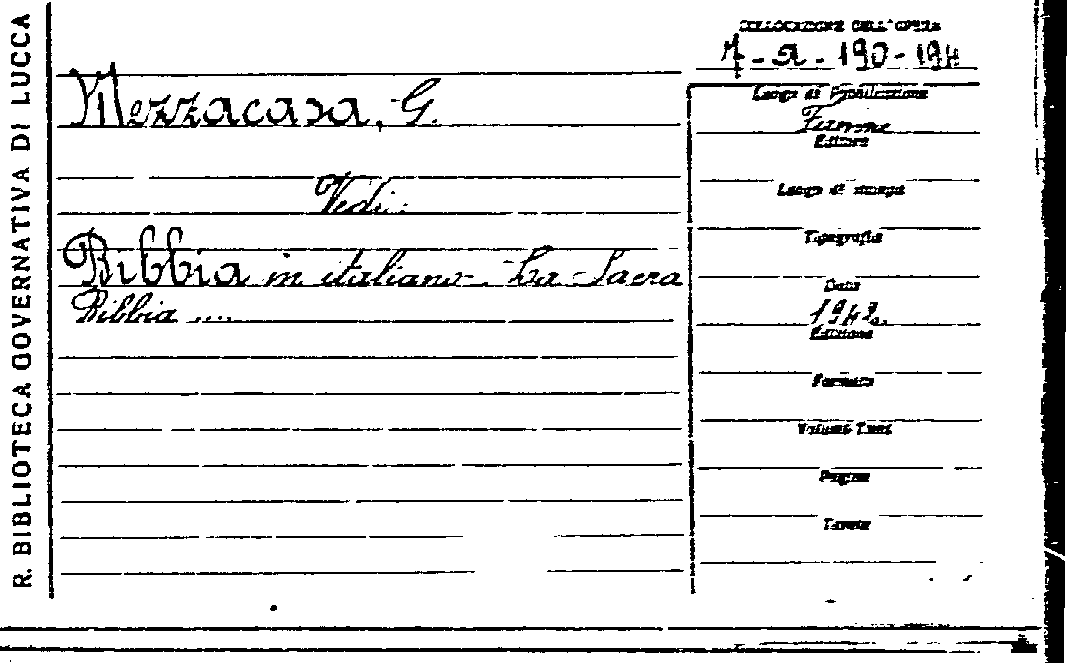 R. BIBLIOTECA GOVERNATIVA DI LUCCA
COLLOCAZIONE DELL'OPERA
7-a-190-194
Mezzacasa, G.
Vedi:
Bibbia in italiano - La Sacra
Bibbia ....
Luogo di Pubblicazione
Firenze
Editore
Luogo di stampa
Tipografia
Data
Edizione
Formato
Volumi Tomi
Pagine
Tavole